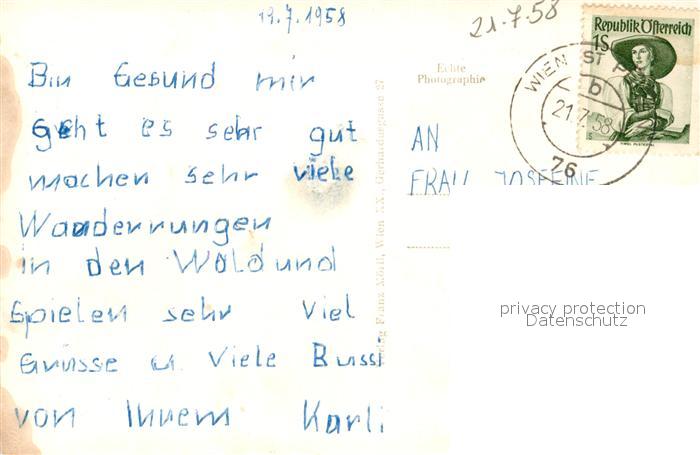 19.7.1958
21.7.58
Bin Gesund mir
geht es sehr gut
machen sehr viele
Wanderrungen
in den Wald und
Spielen sehr viel
Grüsse u. Viele Bussi
von Ihrem Karli
Echte
Photographie
Verlag Franz Mörtl, Wien IX.,
Republik Österreich
1S
WIEN
b
21.7.58
76
AN
FRAU JOSEFINE
privacy protection
Datenschutz